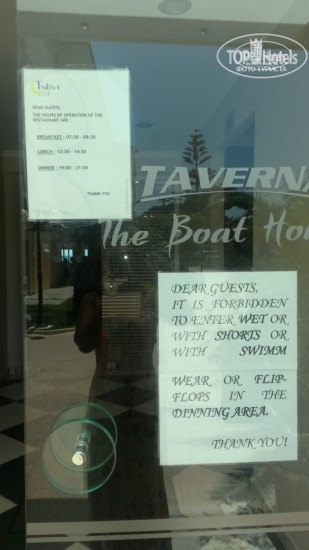 TOPHotels
ФОТО ТУРИСТА
DEAR GUESTS,
THE HOURS OF OPERATION OF THE
RESTAURANT ARE :
BREAKFAST : 07:30 - 09:30
LUNCH : 12:30 - 14:30
DINNER : 19:00 - 21:30
THANK YOU
TAVERNA
The Boat Hou
DEAR GUESTS,
IT IS FORBIDDEN
TO ENTER WET OR
WITH SHORTS OR
WITH SWIMM
WEAR OR FLIP-
FLOPS IN THE
DINNING AREA.
THANK YOU!